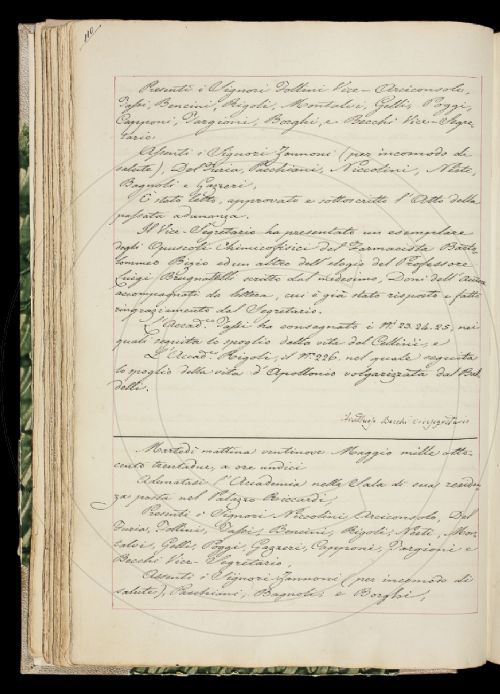 110
Presenti i Signori Follini Vice-Arciconsolo,
Tassi, Bencini, Rigoli, Montalvi, Gelli, Poggi,
Capponi, Targioni, Borghi, e Becchi Vice-Segre-
tario
Assenti i Signori Zannoni (per incomodo di
salute), Del Furia, Pacchiani, Niccolini, Nesti,
Bagnoli e Gazzeri,
È stato letto, approvato e sottoscritto l'Atto della
passata adunanza.
Il Vice-Segretario ha presentato un esemplare
degli Opuscoli Chimicofisici del Farmacista Barto-
lommeo Bizio ed un altro dell'elogio del Professore
Luigi Brugnatelli scritto dal medesimo, Doni dell'Autore
accompagnati da lettera, cui è già stato risposto e fatto
ringraziamento dal Segretario.
L'Accad.co Tassi ha consegnato i Ni. 23. 24. 25, nei
quali seguita lo spoglio della vita del Cellini, e
L'Accad.co Rigoli, il No. 226. nel quale seguita
lo spoglio della vita d'Apollonio volgarizzata dal Bal-
delli.
Becchi Vicesegretario
Martedì mattina ventinove Maggio mille otto-
cento trentadue, a ore undici
Adunatasi l'Accademia nella Sala di sua residen-
za posta nel Palazzo Riccardi,
Presenti i Signori Niccolini Arciconsolo, Del
Furia, Follini, Tassi, Bencini, Rigoli, Nesti, Mon-
talvi, Gelli, Poggi, Gazzeri, Capponi, Targioni e
Becchi Vice-Segretario,
Assenti i Signori Zannoni (per incomodo di
salute), Pacchiani, Bagnoli, e Borghi,